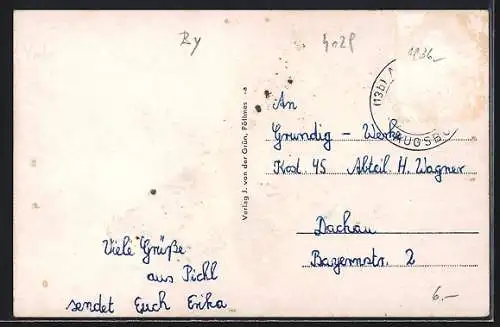 By
1936.-
(13b)
AUGSBU
An
Grundig - Werke
Kost. 45 Abteil. H. Wagner
Dachau
Bayernstr. 2
Verlag J. von der Grün, Pöttmes
Viele Grüße
aus Pichl
sendet Euch Erika
6.-